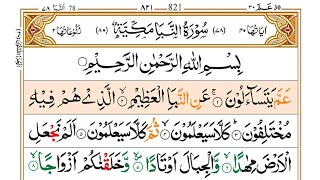 عَمَّ ٣٠ 821 ٨٢١ اَلنَّبَا ٧٨
اٰيَاتُهَا ٤٠ (٧٨) سُوْرَةُ النَّبَاِ مَكِّيَّةٌ (٨٠) رُكُوْعَاتُهَا ٢
بِسْمِ اللّٰهِ الرَّحْمٰنِ الرَّحِيْمِ
عَمَّ يَتَسَآءَلُوْنَ ١ عَنِ النَّبَاِ الْعَظِيْمِ ٢ الَّذِيْ هُمْ فِيْهِ
مُخْتَلِفُوْنَ ٣ كَلَّا سَيَعْلَمُوْنَ ٤ ثُمَّ كَلَّا سَيَعْلَمُوْنَ ٥ اَلَمْ نَجْعَلِ
الْاَرْضَ مِهٰدًا ٦ وَّالْجِبَالَ اَوْتَادًا ٧ وَّخَلَقْنٰكُمْ اَزْوَاجًا ٨